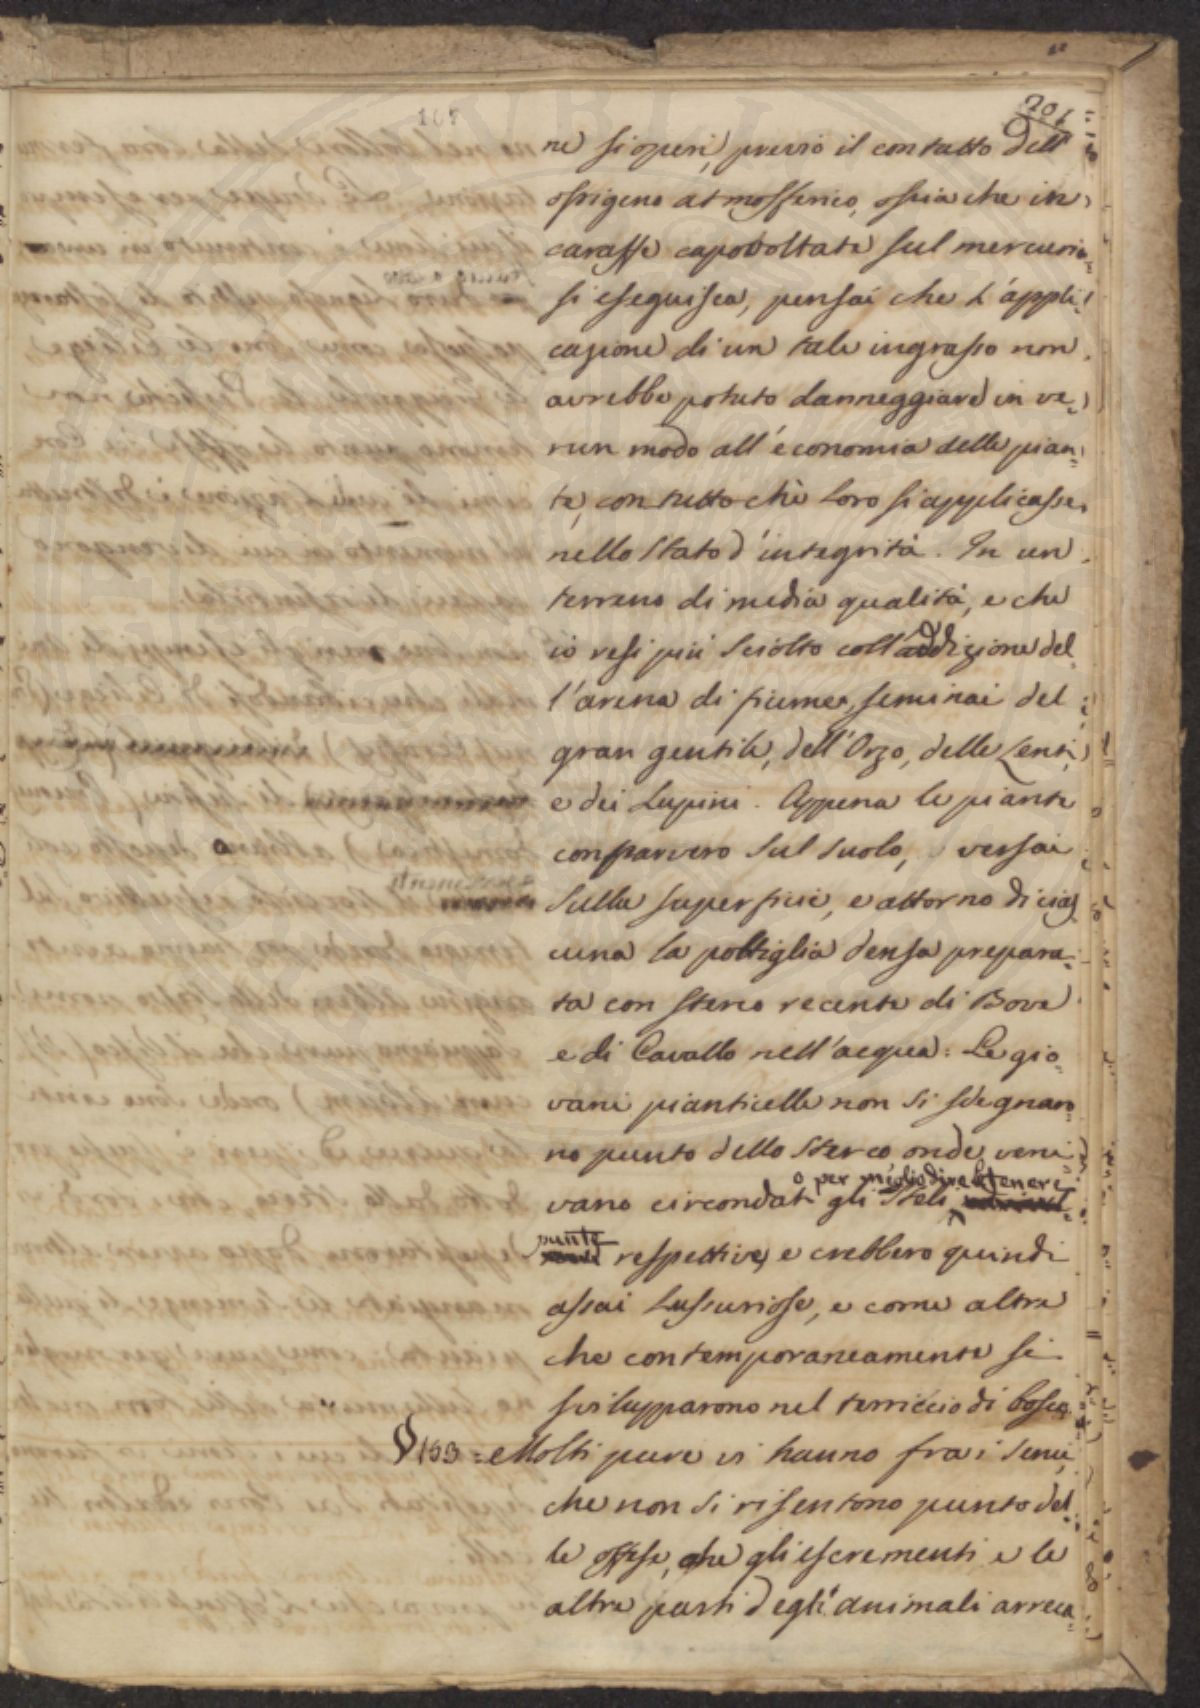 107
201
ne si operi, previo il contatto dell'
ossigeno atmosferico, ossia che in
caraffe capovoltate sul mercurio
si eseguisca, pensai che l'appli=
cazione di un tale ingrasso non
avrebbe potuto danneggiare in ve=
run modo all'economia delle pian=
te, con tutto chè loro si applicasse
nello stato d'integrità. In un
terreno di media qualità, e che
io resi più sciolto coll'addizione del=
l'arena di fiume, seminai del
gran gentile, dell'Orzo, delle Lenti,
e dei Lupini. Appena le piante
comparvero sul suolo, versai
sulla superficie, e attorno di cias
cuna la poltiglia densa prepara=
ta con sterco recente di Bove
e di Cavallo nell'acqua: Le gio=
vani pianticelle non si sdegnaro
no punto dello sterco onde veni=
o per miglio dire le tenere
vano circondati gli steli
piante
respettive, e crebbero quindi
assai lussuriose, e come altre
che contemporaneamente si
svilupparono nel terriccio di bosco.
§ 133 = Molti pure vi hanno fra i semi,
che non si risentono punto del=
le offese, che gli escrementi e le
altre parti degli animali arreca=